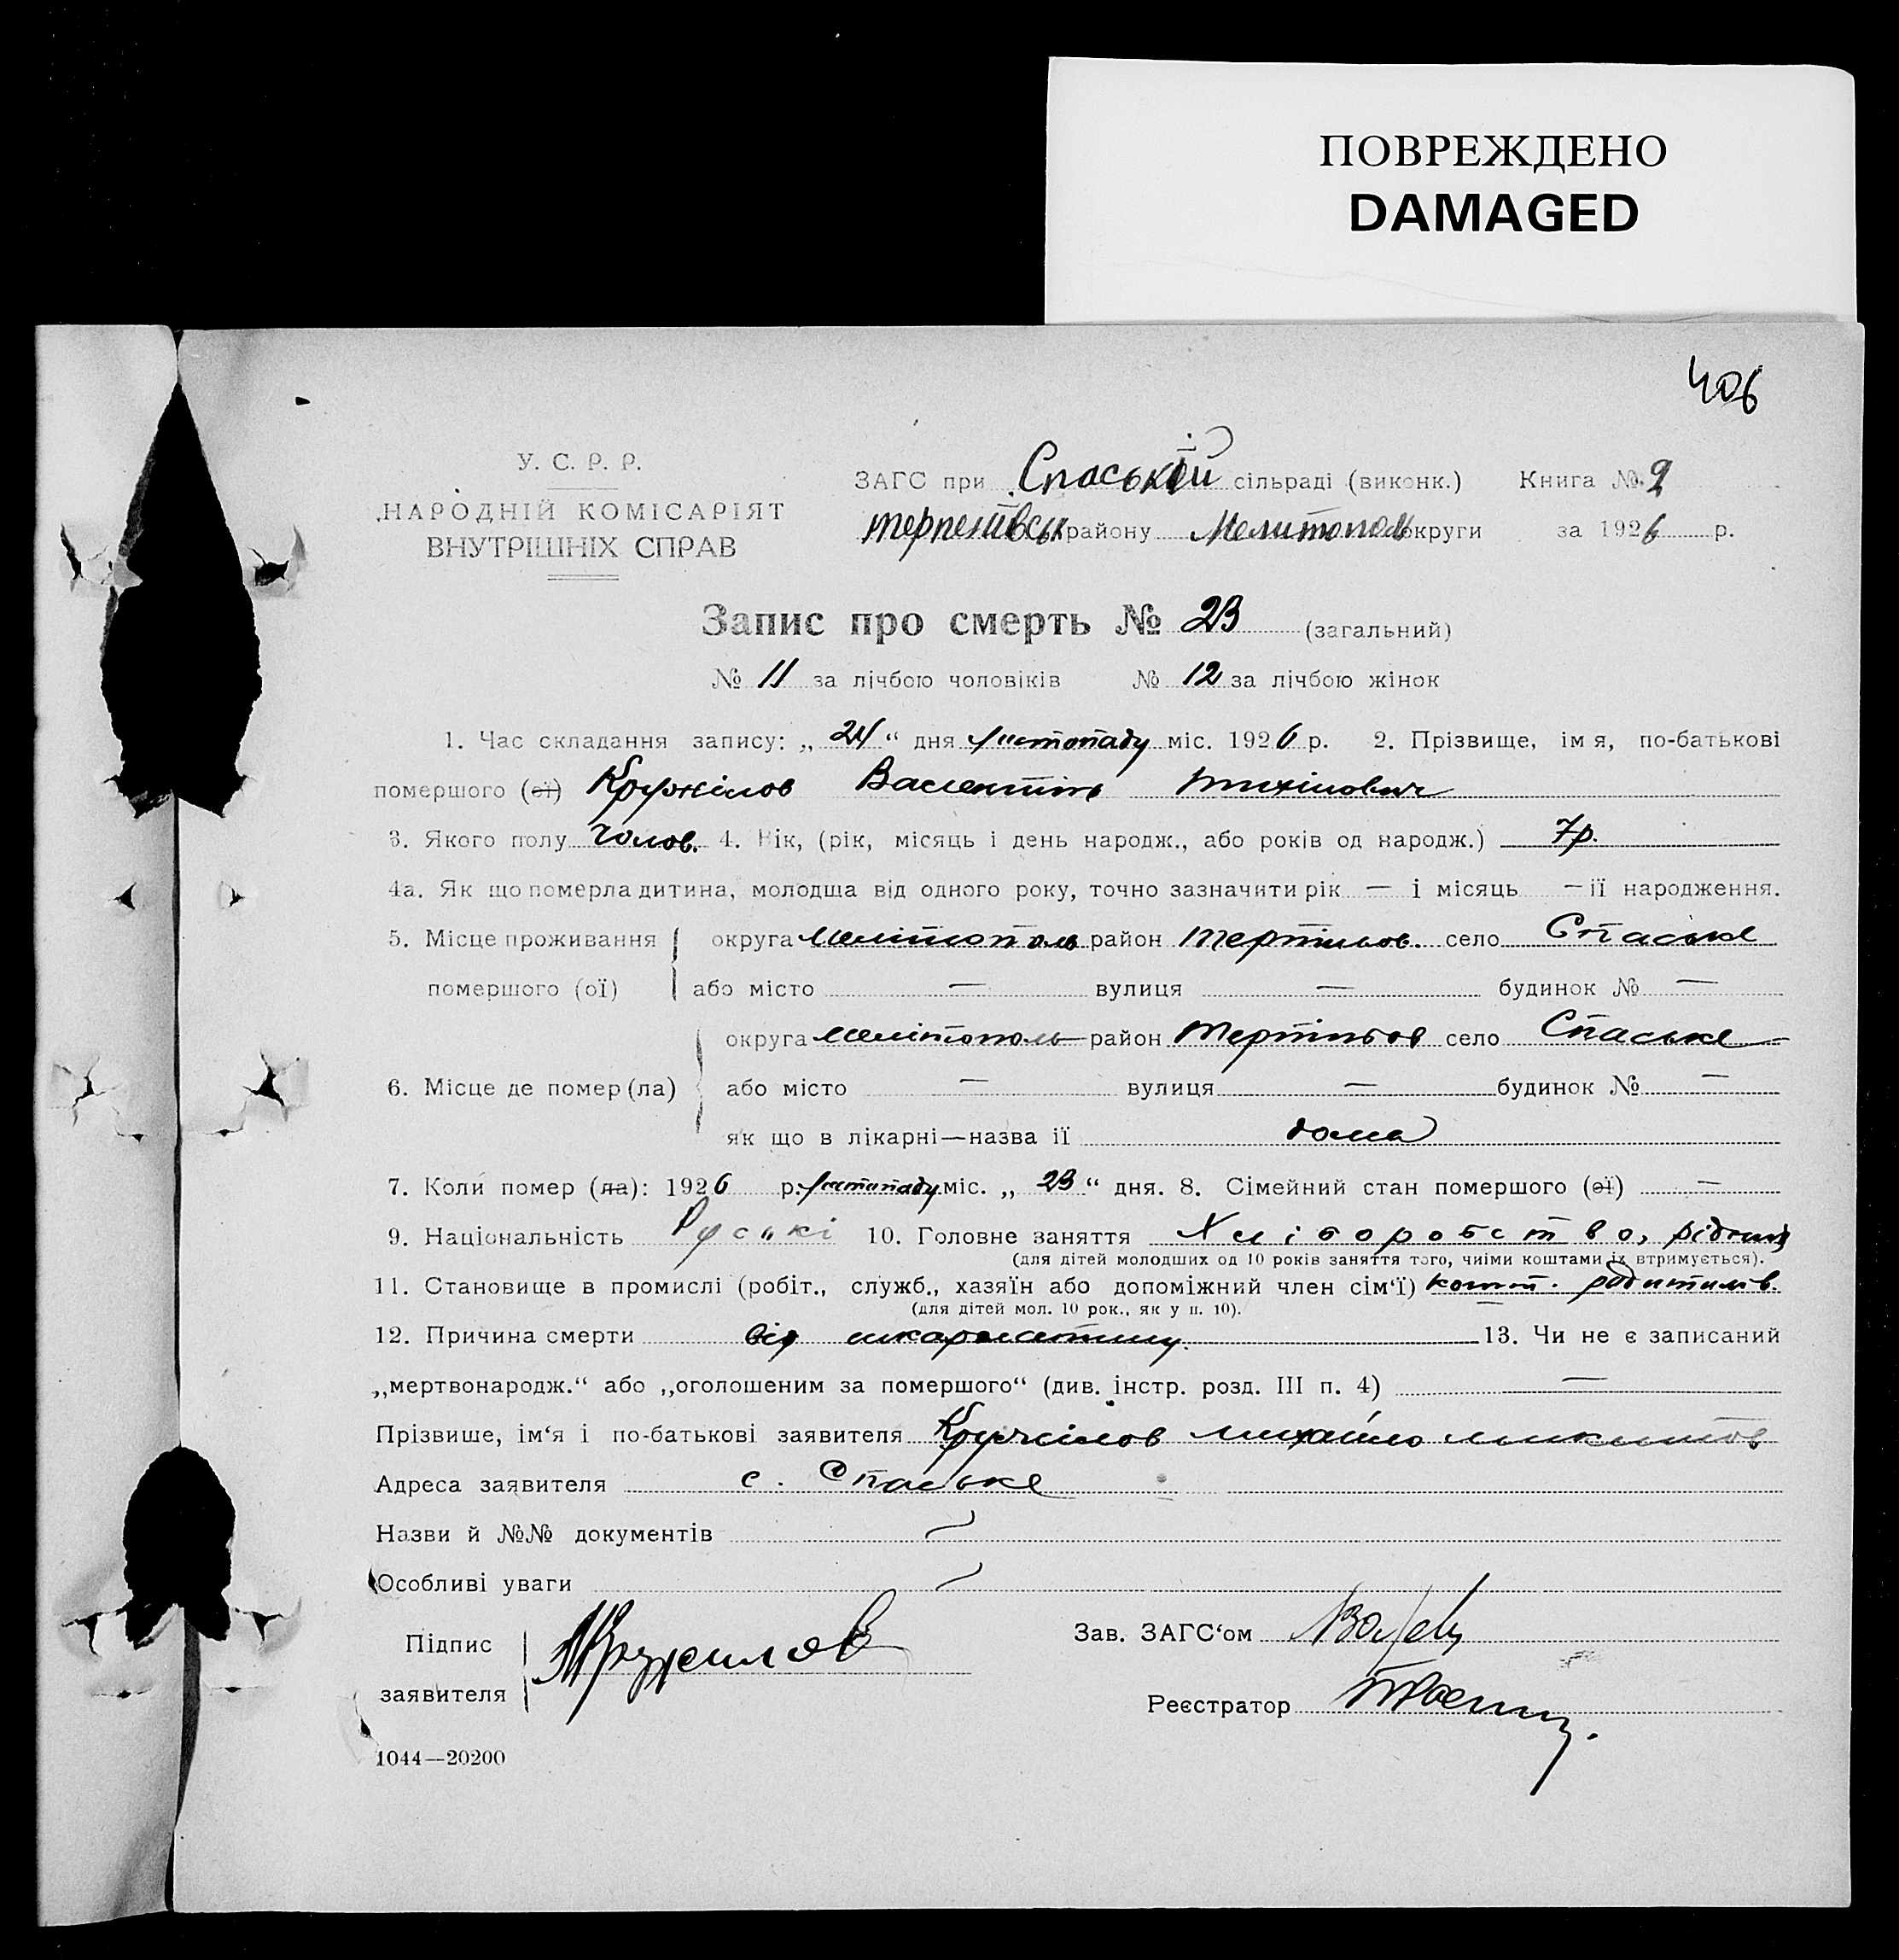 ПОВРЕЖДЕНО
DAMAGED
406
У. С. Р. Р.
НАРОДНІЙ КОМІСАРІЯТ
ВНУТРІШНІХ СПРАВ
ЗАГС при Спаській сільраді (виконк.) Книга № 2
району Мелитополь округи за 1926 р.
Запис про смерть № 23 (загальний)
№ 11 за лічбою чоловіків № 12 за лічбою жінок
1. Час складання запису: „ 24 “ дня листопаду міс. 1926 р. 2. Прізвище, імя, по-батькові
помершого (ої) Кружілов Валентін Тихінович
3. Якого полу чолов. 4. Вік, (рік, місяць і день народж., або років од народж.) 7р.
4а. Як що померла дитина, молодша від одного року, точно зазначити рік — і місяць — її народження.
5. Місце проживання округа Мелітополь район село Спаське
помершого (ої) або місто — вулиця — будинок № —
округа Мелітополь район село Спаське
6. Місце де помер (ла) або місто — вулиця — будинок № —
як що в лікарні—назва її дома
7. Коли помер (ла): 1926 р. листопаду міс. „ 23 “ дня. 8. Сімейний стан помершого (ої) —
9. Національність Руські 10. Головне заняття Хліборобство,
(для дітей молодших од 10 років заняття того, чиїми коштами їх втримується).
11. Становище в промислі (робіт., служб., хазяїн або допоміжний член сім‘ї)
(для дітей мол. 10 рок., як у п. 10).
12. Причина смерти від шкарлатини. 13. Чи не є записаний
„мертвонародж.“ або „оголошеним за помершого“ (див. інстр. розд. III п. 4) —
Прізвише, ім‘я і по-батькові заявителя Кружілов Михайло Микитов
Адреса заявителя с. Спаське
Назви й №№ документів —
Особливі уваги —
Підпис
заявителя МКружилов
Зав. ЗАГС‘ом
Реєстратор
1044—20200